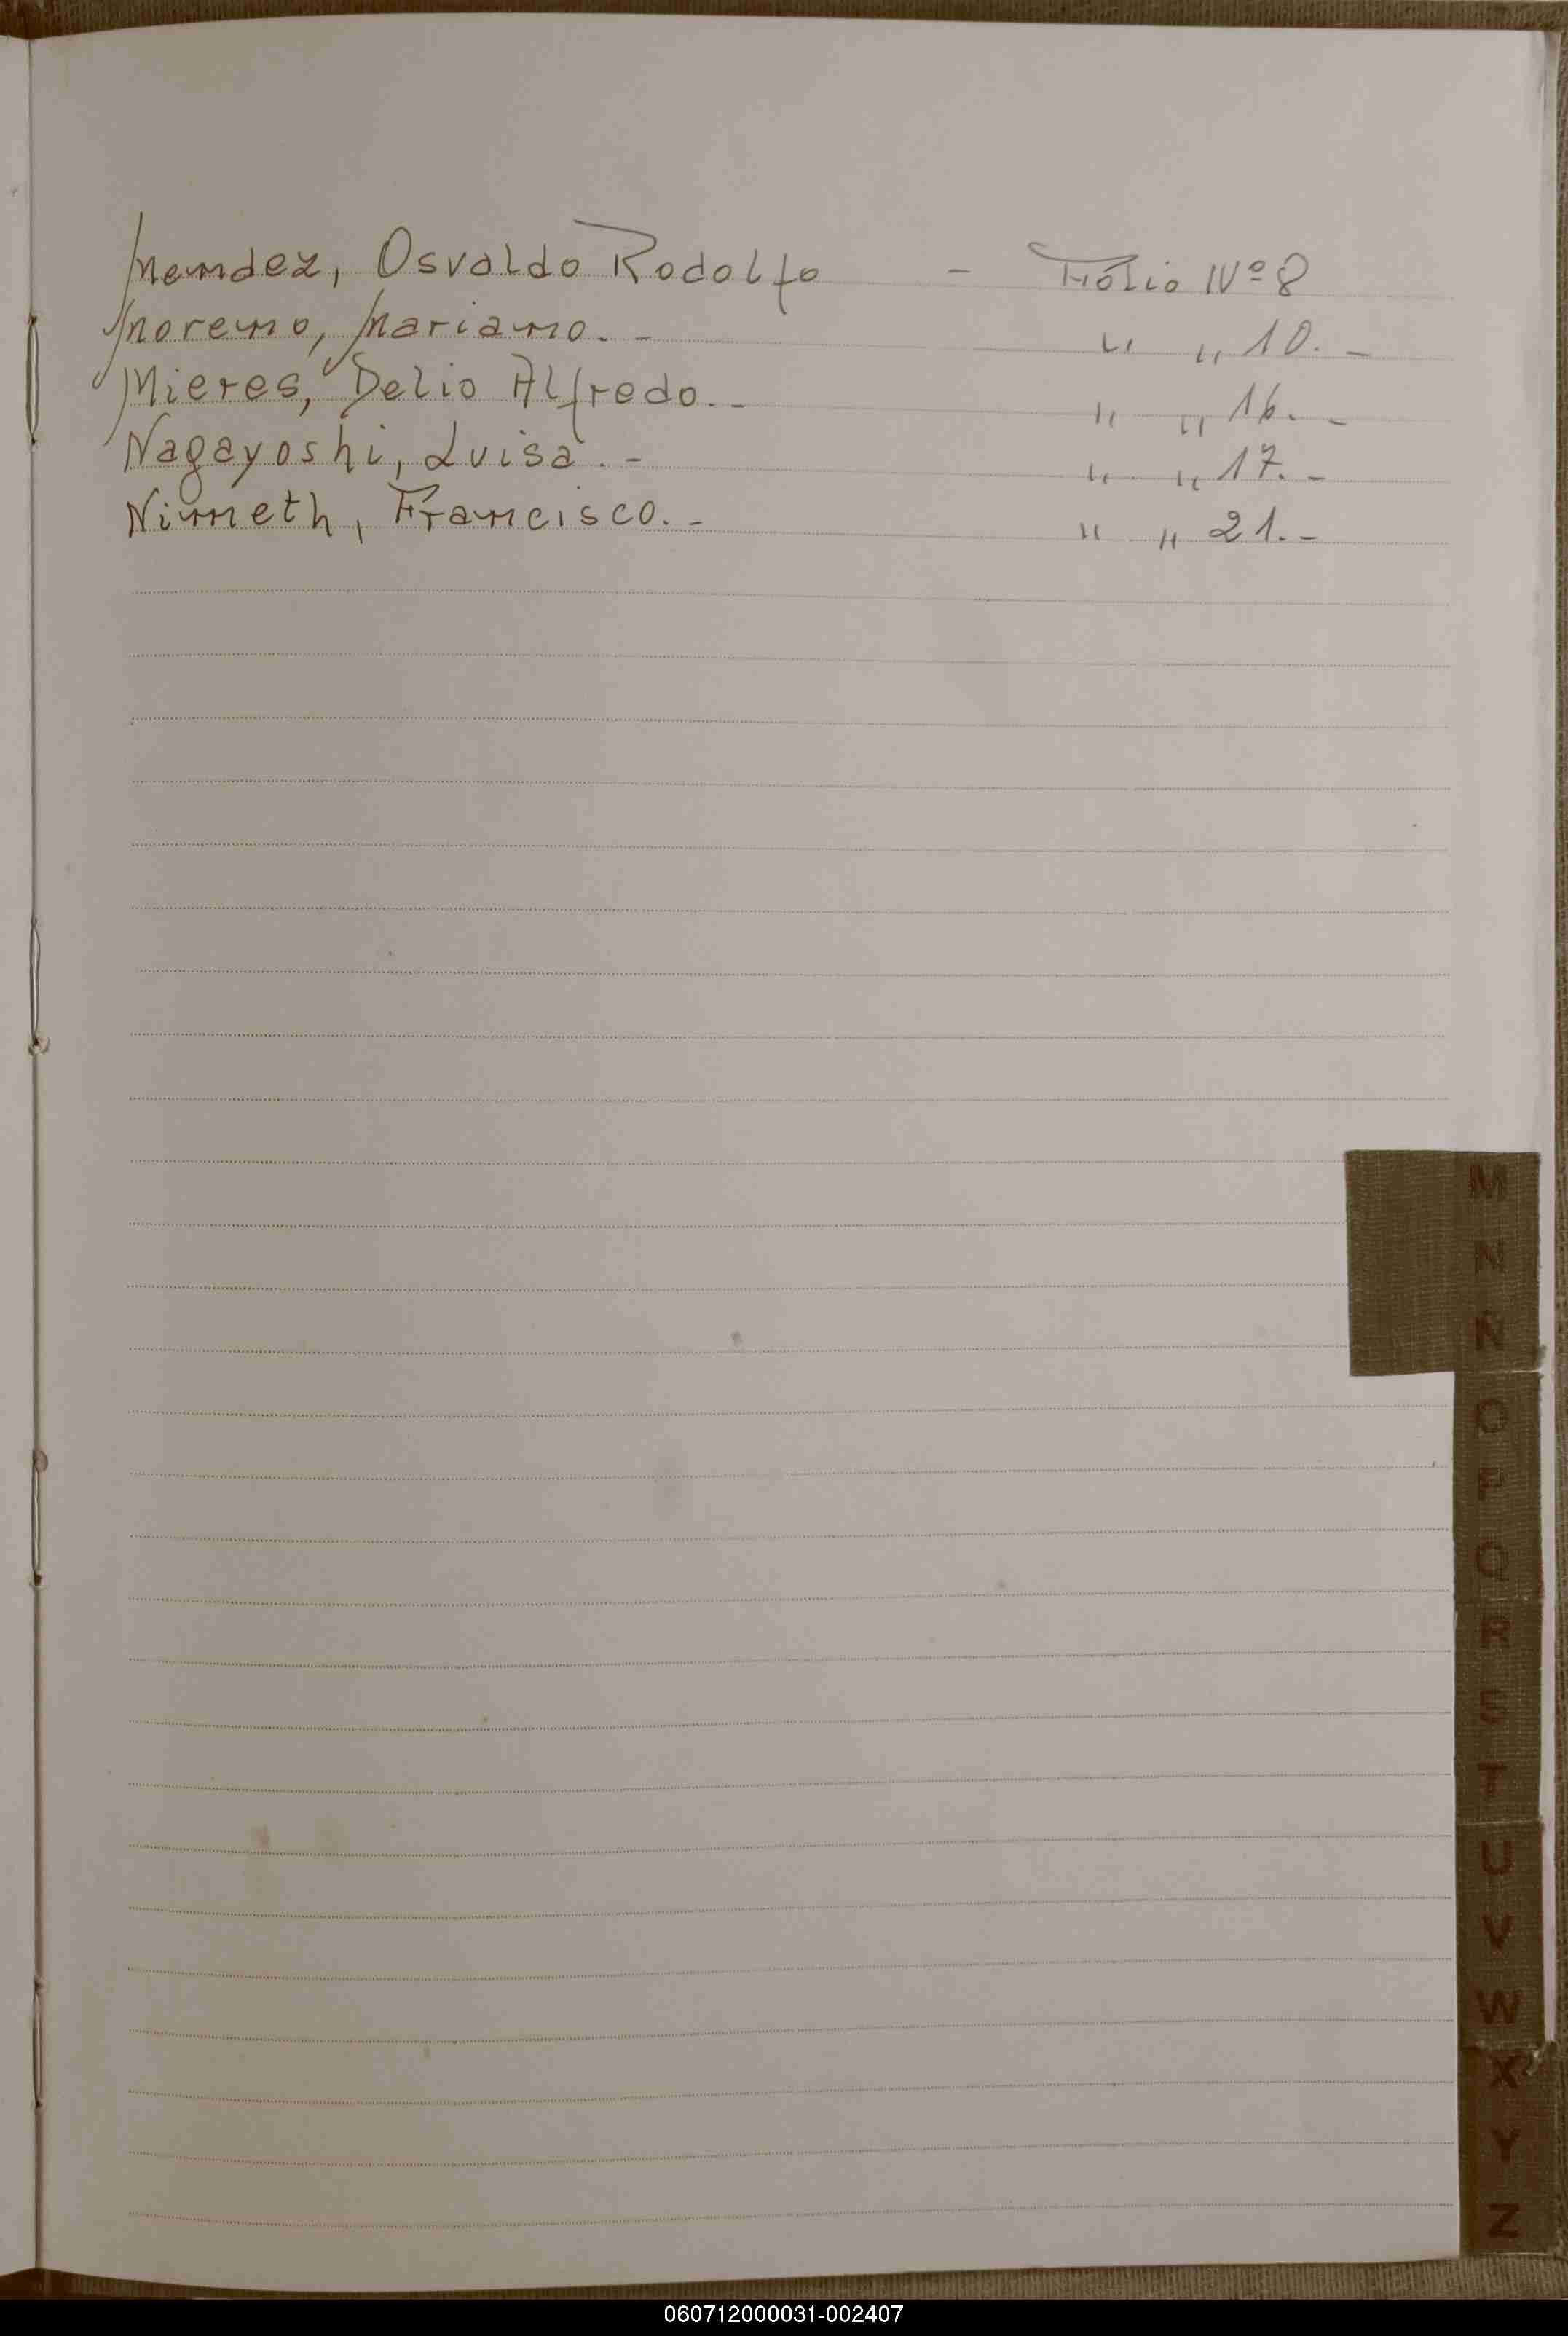 Mendez, Osvaldo Rodolfo - Fólio Nº 8
Moreno, Mariano. - " " 10. -
Mieres, Delio Alfredo. - " " 16. -
Nagayoshi, Luisa. - " " 17. -
Nimeth, Francisco. - " " 21. -
M
N
Ñ
O
P
Q
R
S
T
U
V
W
X
Y
Z
060712000031-002407